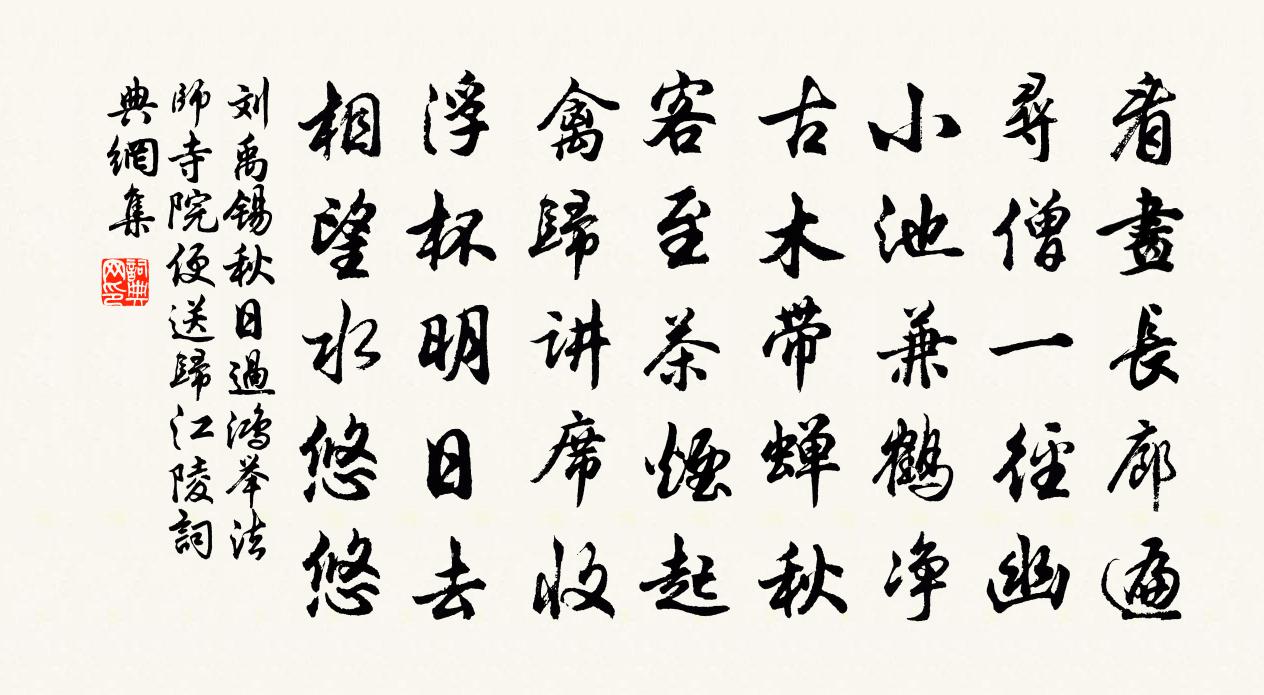 看畫長廊遍
尋僧一徑幽
小池兼鶴净
古木带蝉秋
客至茶煙起
禽歸讲席收
浮杯明日去
相望水悠悠
刘禹锡秋日過鴻举法
師寺院便送歸江陵詞
典網集
詞典
网印